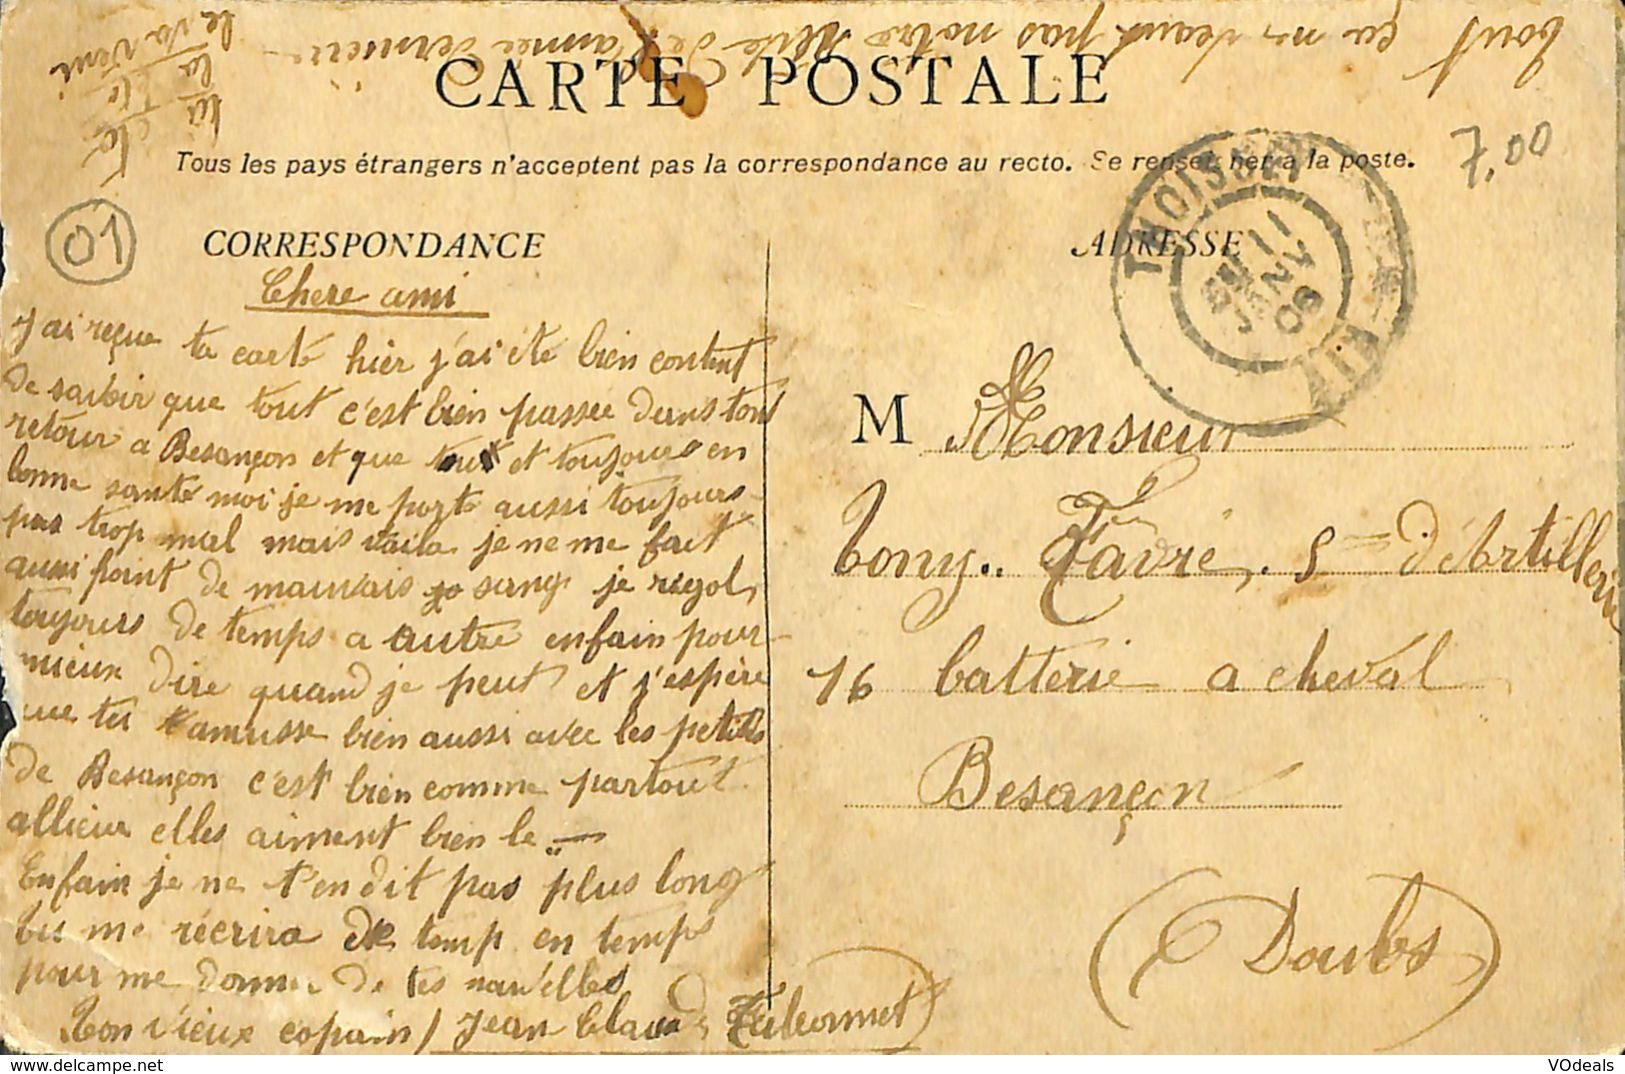 tout ça ne veaux pas notre fête de l'année dernière
le va veni
la
CARTE POSTALE
Tous les pays étrangers n'acceptent pas la correspondance au recto. Se renseigner à la poste.
7,00
01
CORRESPONDANCE
ADRESSE
THOISSEY
11
JANV
08
AIN
Chere ami
J'ai reçue ta carte hier j'ai été bien content
de savoir que tout c'est bien passee dans ton
retour a Besançon et que tu et toujours en
bonne santé moi je me porte aussi toujours
pas trop mal mais voila je ne me fait
aussi point de mauvais sang je rigol
toujours de temps a autre enfain pour
mieux dire quand je peut et j'espère
que tu t'amusse bien aussi avec les petites
de Besançon c'est bien comme partout
allieur elles aiment bien le ..
Enfain je ne t'en dit pas plus long
tu me récrira de temp en temps
pour me donner de tes nouvelles
Ton vieux copain / Jean Claude
M Monsieur
Tony Favre, 5me d'Artillerie
16 batterie a cheval
Besançon
(Doubs)
VOdeals